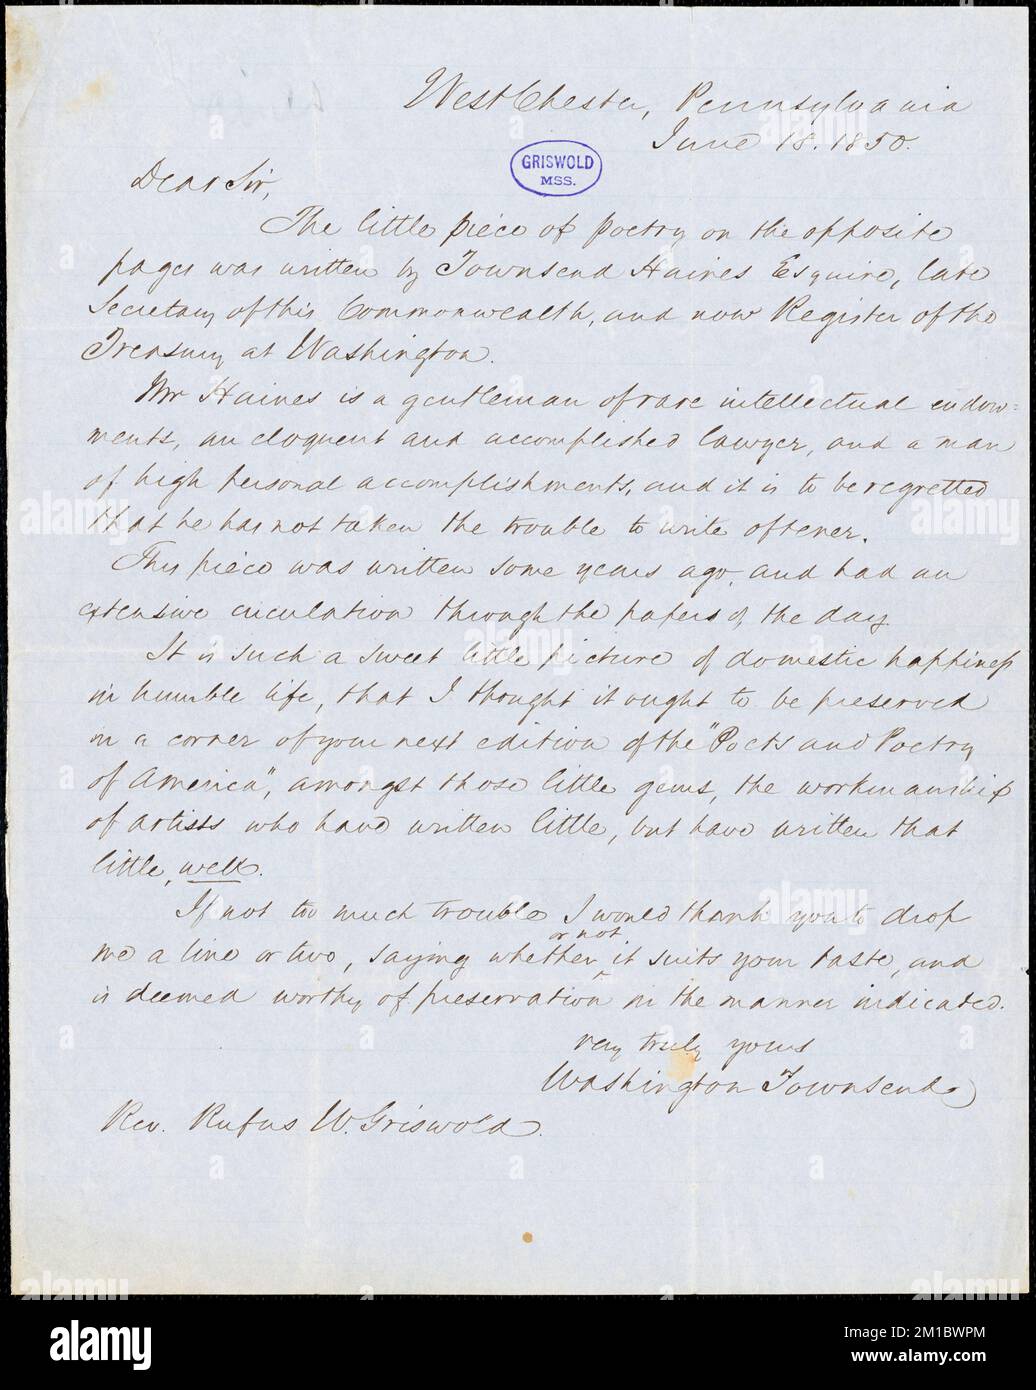 West Chester, Pennsylvania
June 18. 1850.
GRISWOLD
MSS.
Dear Sir,
The little piece of poetry on the opposite
pages was written by Townsend Haines Esquire, late
Secretary of this Commonwealth, and now Register of the
Treasury at Washington.
Mr Haines is a gentleman of rare intellectual endow=
ments, an eloquent and accomplished lawyer, and a man
of high personal accomplishments, and it is to be regretted
that he has not taken the trouble to write oftener.
This piece was written some years ago, and had an
extensive circulation through the papers of the day.
It is such a sweet little picture of domestic happiness
in humble life, that I thought it ought to be preserved
in a corner of your next edition of the "Poets and Poetry
of America", amongst those little gems, the workmanship
of artists who have written little, but have written that
little, well.
If not too much trouble I would thank you to drop
or not
me a line or two, saying whether ^ it suits your taste, and
is deemed worthy of preservation in the manner indicated.
very truly yours
Washington Townsend
Rev. Rufus W. Griswold.
alamy
Image ID: 2M1BWPM
www.alamy.com